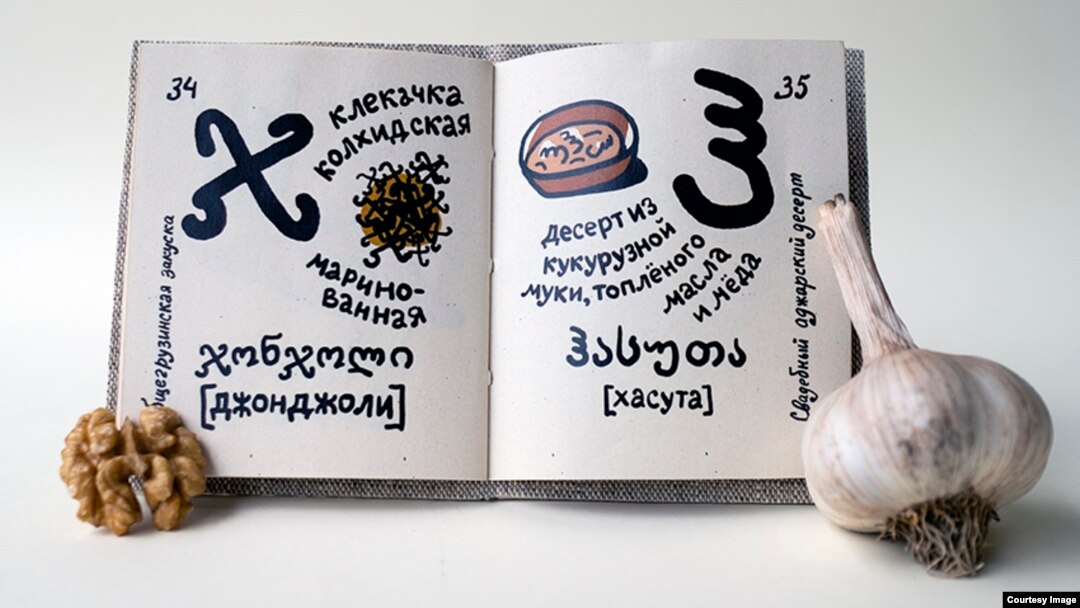 34
ჯ
клекачка
колхидская
марино-
ванная
ჯონჯოლი
[джонджоли]
бщегрузинская закуска
35
ჰ
десерт из
кукурузной
муки, топлёного
масла
и мёда
ჰასუთა
[хасута]
Свадебный аджарский десерт
Courtesy Image